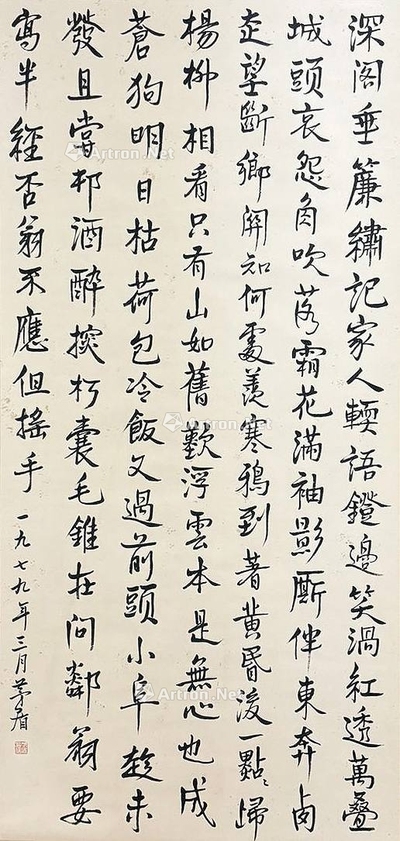 深阁垂簾繡記家人輭語鐙邊笑渦紅透萬疊
城頭哀怨角吹落霜花滿袖影厮伴東奔卤
走望斷鄉關知何處羨寒鴉到著黄昏後一點〻歸
楊柳相看只有山如舊歎浮雲本是無心也成
蒼狗明日枯荷包冷飯又過前頭小阜趂未
發且嘗邨酒醉探朽囊毛錐在問鄰翁要
寫半經否翁不應但摇手 一九七九年三月茅盾
Artron.Net
Artron.Net
Artron.Net
Artron.Net
Artron.Net
Artron.Net